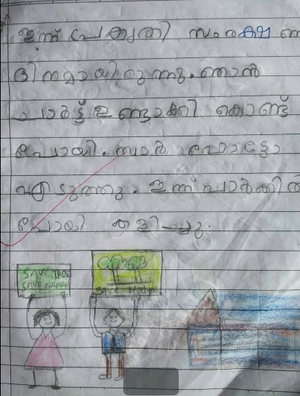 ഇന്ന് പ്രകൃതി സംരക്ഷണ
ദിനമായിരുന്നു. ഞാൻ
ചാർട്ട് ഉണ്ടാക്കി കൊണ്ട്
പോയി. സാർ ഫോട്ടോ
എടുത്തു. ഇന്ന് പാർക്കിൽ
പോയി കളിച്ചു.
SAVE TREE
SAVE